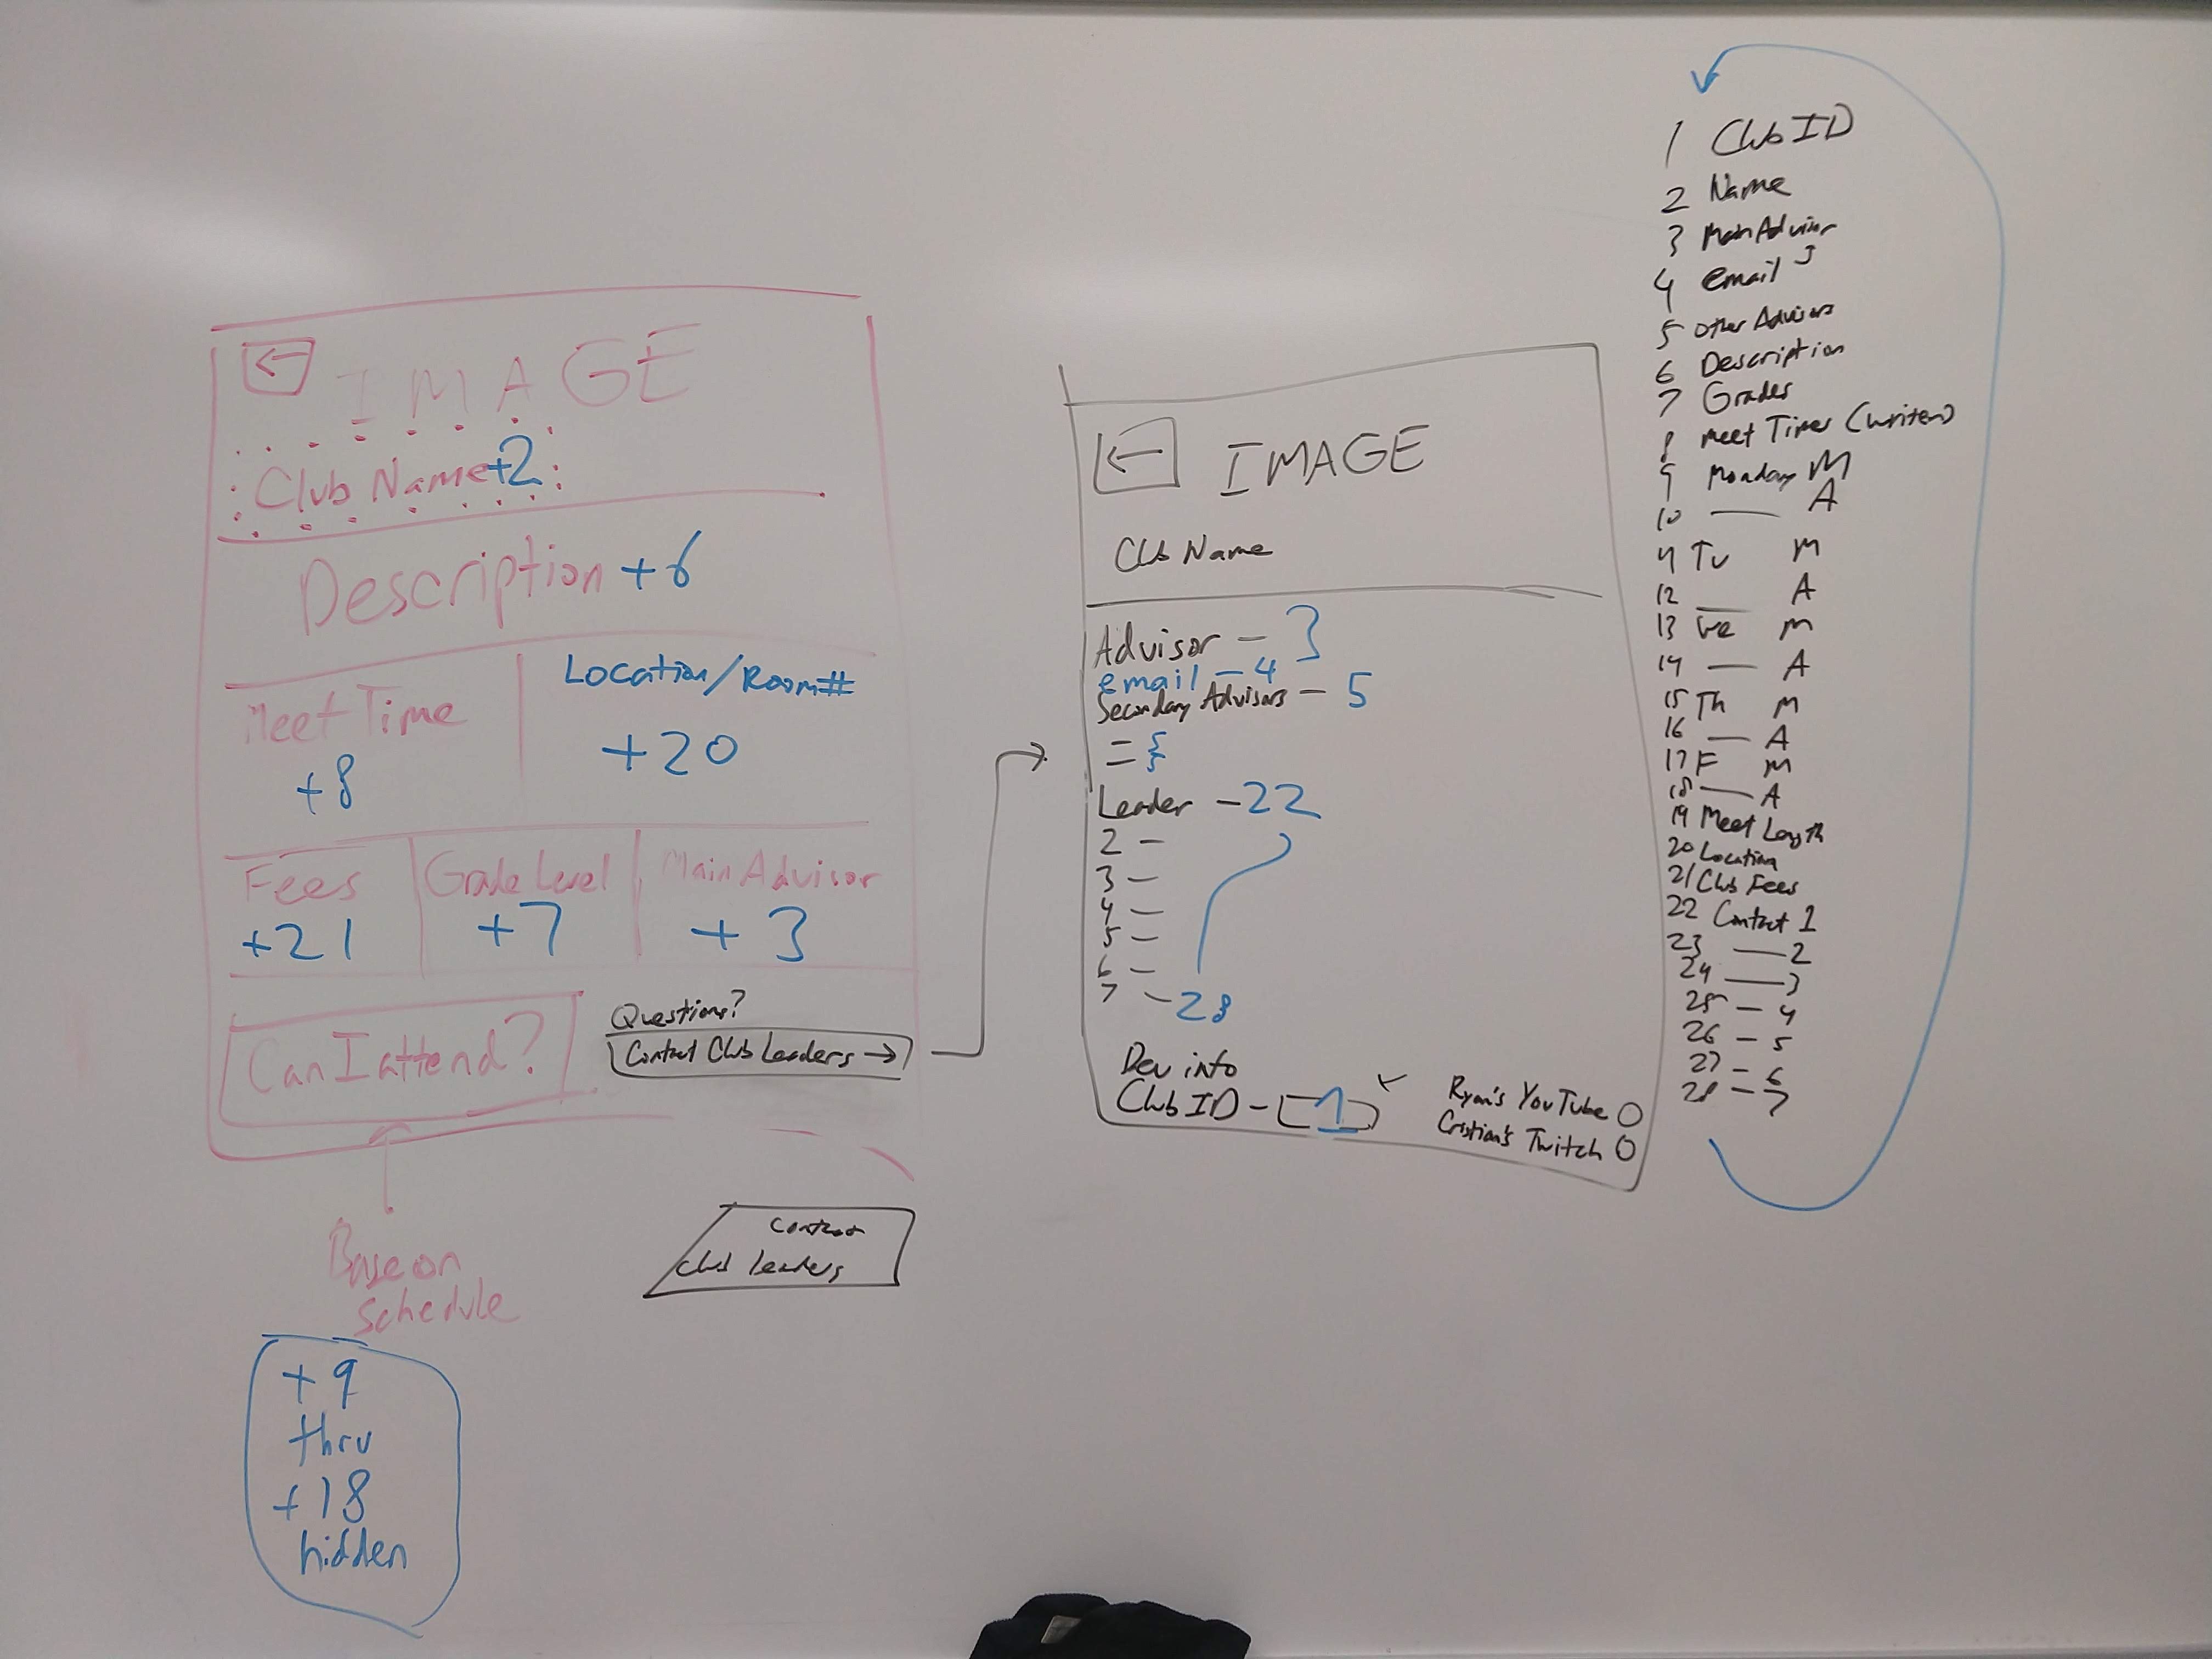 ←
IMAGE
Club Name +2
Description +6
Meet Time
+8
Location/Room#
+20
Fees
+21
Grade Level
+7
Main Advisor
+3
Can I attend?
Questions?
Contact Club Leaders →
Base on
Schedule
+9
thru
+18
hidden
Contact
Club Leaders
←
IMAGE
Club Name
Advisor - 3
email - 4
Secondary Advisors - 5
Leader - 22
2 -
3 -
4 -
5 -
6 -
7 - 28
Dev info
Club ID - 1
Ryan's YouTube
Cristian's Twitch
1 Club ID
2 Name
3 Main Advisor
4 email
5 Other Advisors
6 Description
7 Grades
8 Meet Times (Writen)
9 Monday M
10 — A
11 Tu M
12 — A
13 We M
14 — A
15 Th M
16 — A
17 F M
18 — A
19 Meet Length
20 Location
21 Club Fees
22 Contact 1
23 — 2
24 — 3
25 — 4
26 — 5
27 - 6
28 - 7